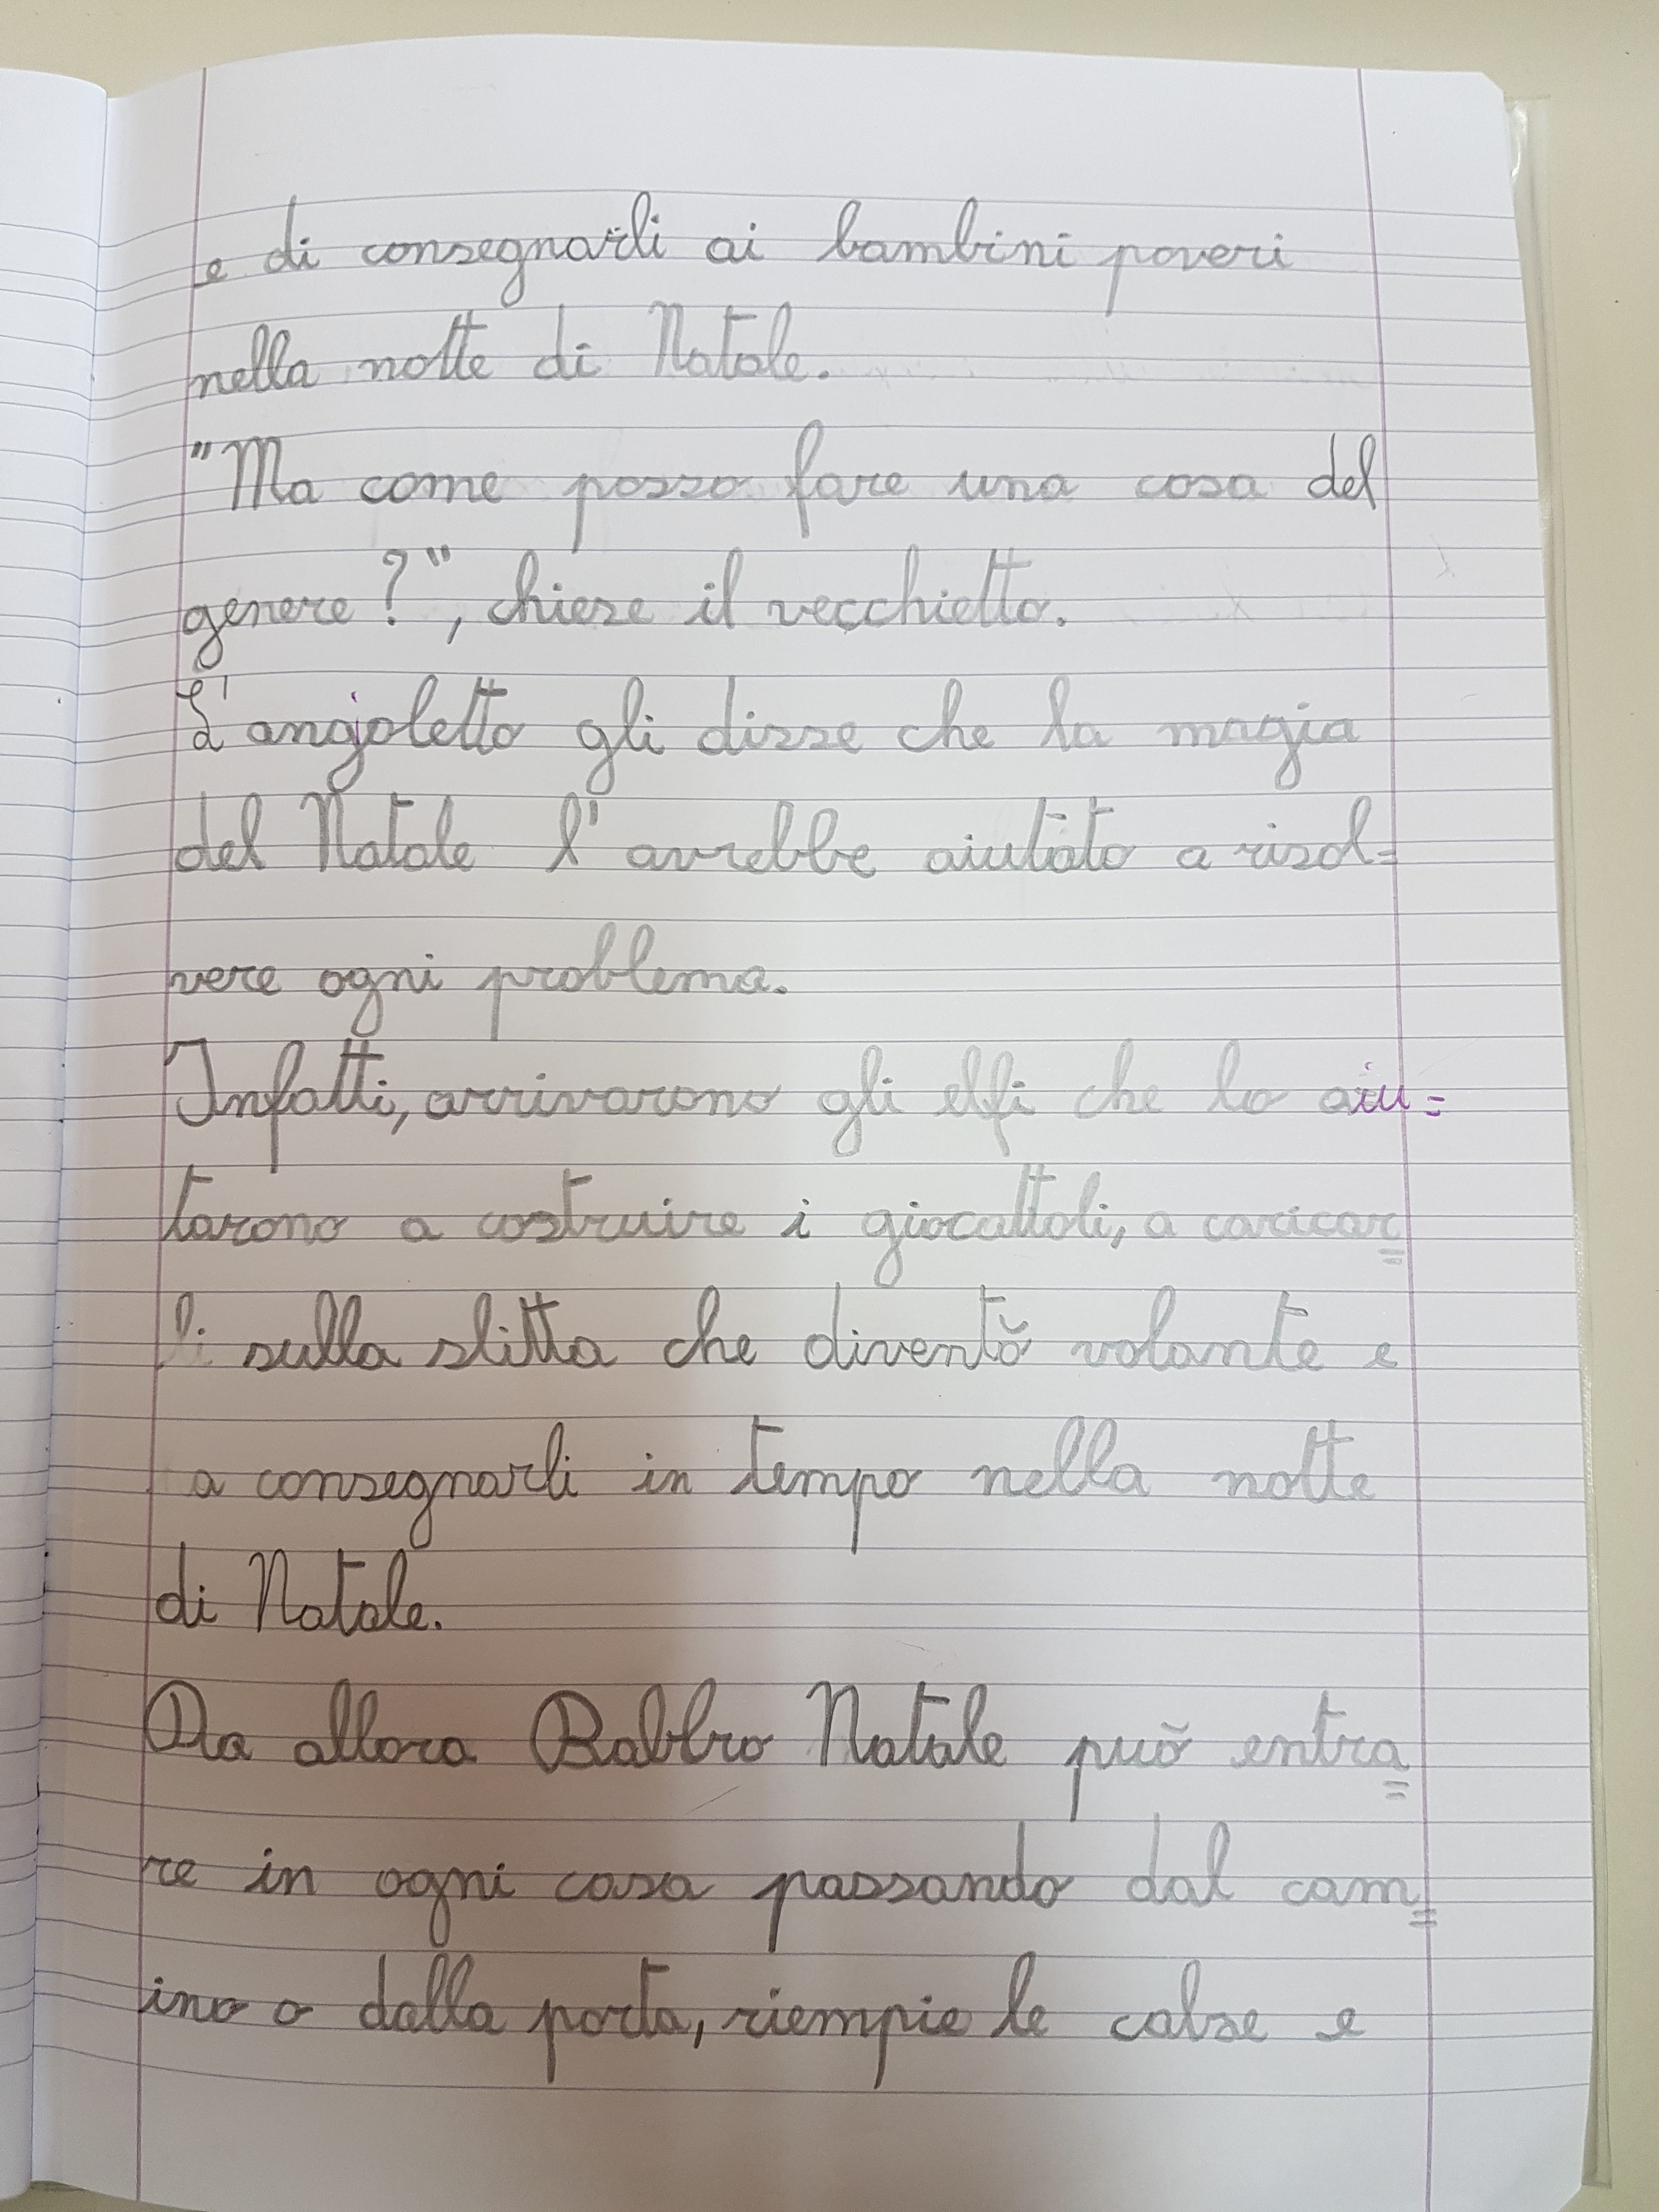 e di consegnarli ai bambini poveri
nella notte di Natale.
"Ma come posso fare una cosa del
genere?", chiese il vecchietto.
L'angioletto gli disse che la magia
del Natale l'avrebbe aiutato a risol=
vere ogni problema.
Infatti, arrivarono gli elfi che lo aiu=
tarono a costruire i giocattoli, a caricar=
li sulla slitta che diventò volante e
a consegnarli in tempo nella notte
di Natale.
Da allora Babbo Natale può entra=
re in ogni casa passando dal cam=
ino o dalla porta, riempie le calse e